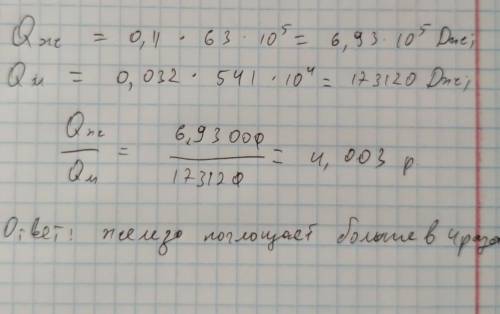 Qж = 0,11 · 63 · 10⁵ = 6,93 · 10⁵ Дж;
Qм = 0,032 · 541 · 10⁴ = 173120 Дж;
Qж / Qм = 6,93000 / 173120 = 4,003 р
Ответ: железо поглощает больше в 4 раза